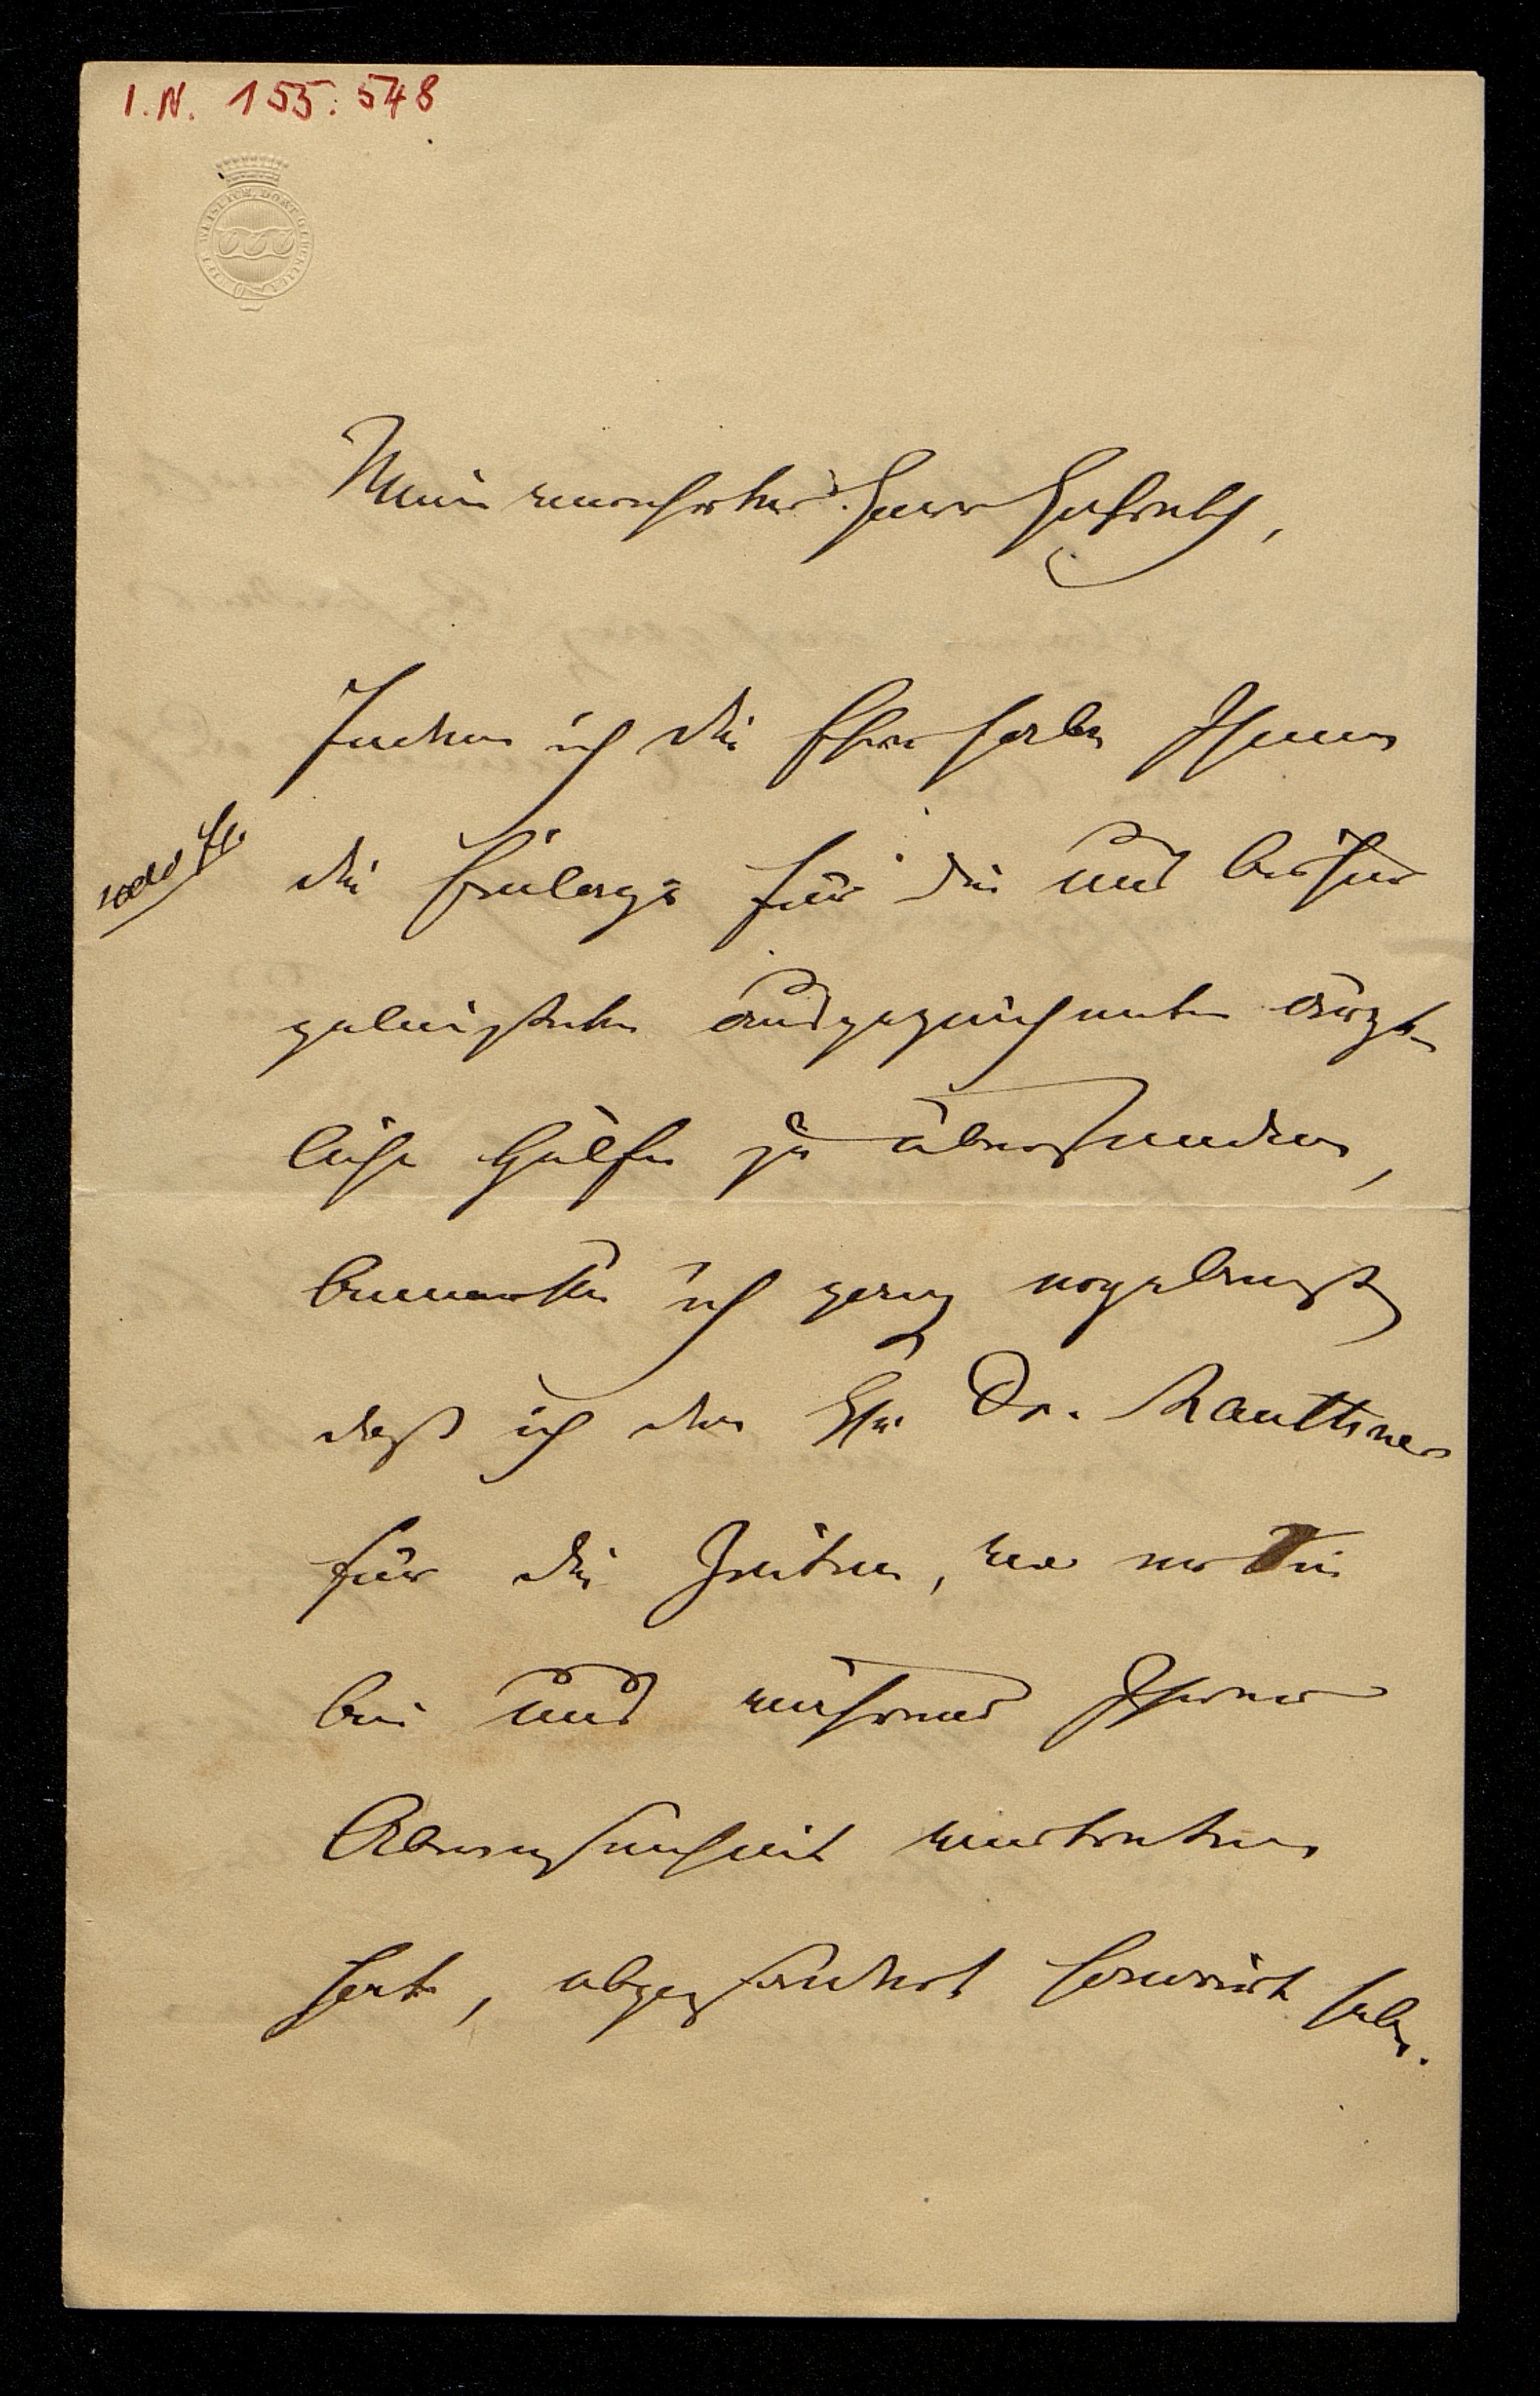 I.N. 155.548
Mein verehrter Herr Hofrath,
Indem ich die Ehre habe Ihnen
1000 fl.
die Beilage für die uns bisher
geleistete ausgezeichnete ärzt-
liche Hülfe zu übersenden,
bemerke ich ganz ergebenst
daß ich den Hrn Dr. Mauthner
für die Zeiten, wo er Sie
bei uns während Ihrer
Abwesenheit vertreten
hat, abgesondert honorirt habe.